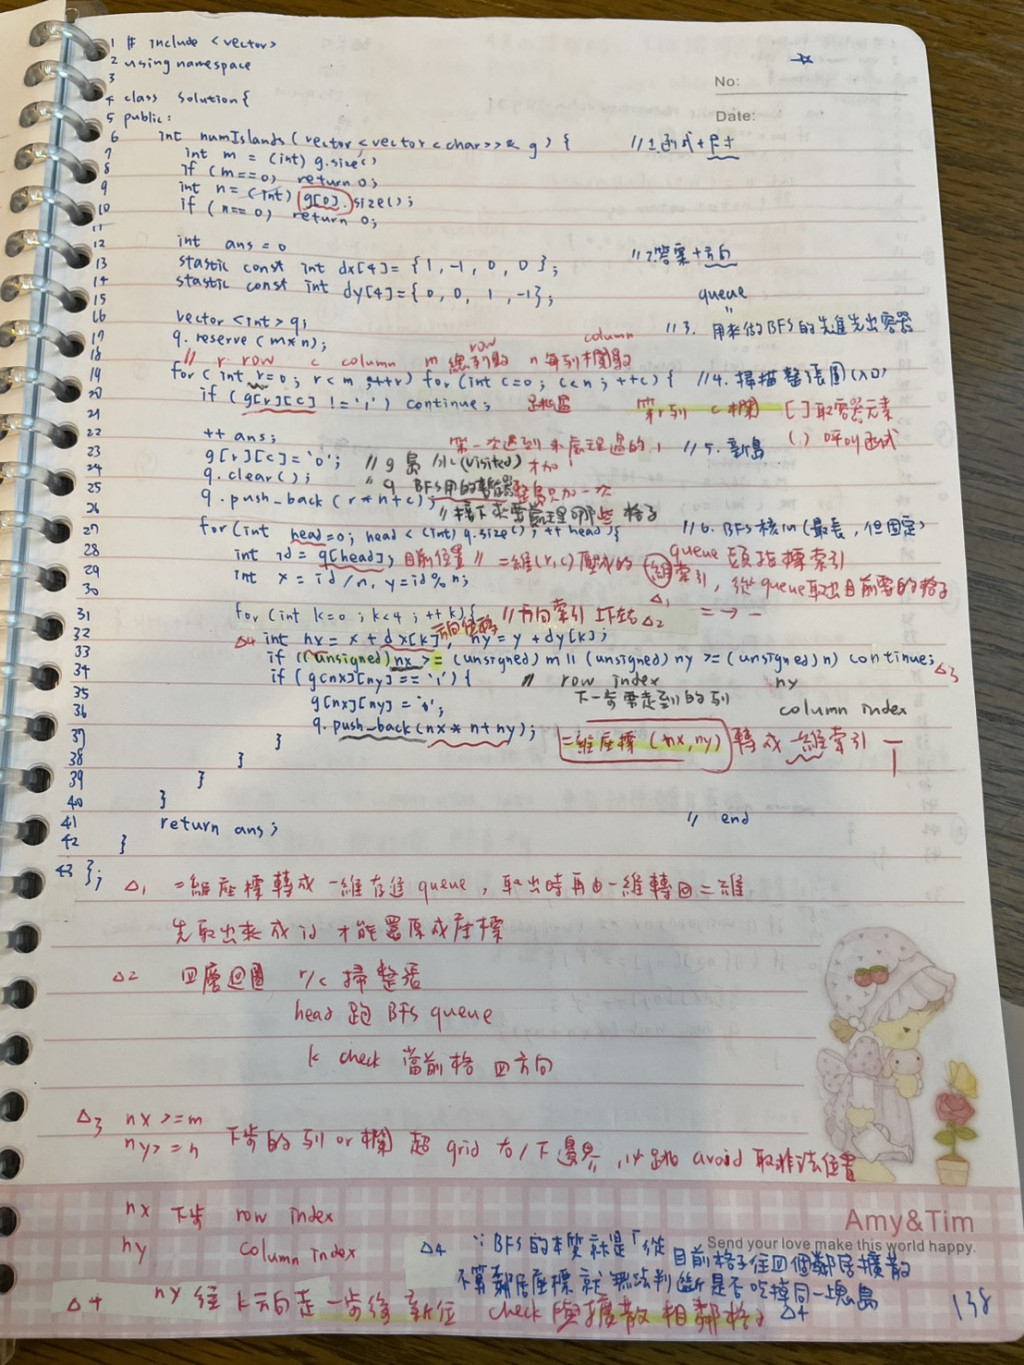 No:
Date:
1 # include <vector>
2 using namespace
3
4 class Solution{
5 public:
6 int numIslands(vector<vector<char>>& g) { //1.函式+尺寸
7 int m = (int) g.size()
8 if (m==0) return 0;
9 int n=(int) g[0].size();
10 if (n==0) return 0;
11
12 int ans = 0 //2.答案+方向
13 stastic const int dx[4]={1,-1,0,0};
14 stastic const int dy[4]={0,0,1,-1};
15 queue
16 vector<int>q; //3. 用來做BFS的先進先出容器
17 q.reserve(m*n);
18 // r row c column m 總列數 n 每列欄數
row column
19 for(int r=0; r<m;++r) for(int c=0; c<n; ++c) { //4. 掃描整張圖(入口)
20 if (g[r][c] !='1') continue; 跳過 第r列 c欄 [ ]取容器元素
21 ( ) 呼叫函式
22 ++ans; 第一次遇到未處理過的1 //5. 新島
23 g[r][c]='0'; //g 島 (visited) 才加1
24 q.clear(); //q BFS用的 整島只加一次
25 q.push_back(r*n+c);
26 //接下來要處理哪些格子
27 for(int head=0; head<(int)q.size(); ++head){ //6. BFS核心(最長,但固定)
28 int id = q[head]; 目前位置 // 二維(r,c)壓成的 索引, 從queue取出目前要的格子
queue 頭指標索引
29 int x=id/n, y=id%n;
30 △1 二→一
31 for(int k=0; k<4; ++k){ //方向索引 上下左右 △2
32 △4 int nx = x+dx[k], ny=y+dy[k];
33 if ((unsigned)nx >= (unsigned)m || (unsigned) ny >= (unsigned)n) continue; △3
34 if (g[nx][ny]=='1'){ // row index ny
35 g[nx][ny]='0'; 下一步要走到的列 column index
36 q.push_back(nx*n+ny); 二維座標(nx,ny) 轉成一維索引
37 }
38 }
39 }
40 }
41 return ans; // end
42 }
43 };
△1 二維座標轉成一維存進queue, 取出時再由一維轉回二維
先取出來成id才能還原成座標
△2 四層迴圈 r/c 掃整張
head 跑 BFS queue
k check 當前格四方向
△3 nx>=m
ny>=n 下步的列or欄 超 grid 右/下邊界, 以跳 avoid 取非法位置
nx 下步 row index
ny column index
Amy&Tim
Send your love make this world happy.
△4 ∵BFS的本質就是「從目前格子往四個鄰居擴散
不算鄰居座標就無法判斷是否吃掉同一塊島
△4 ny 往k方向走一步後新位 check與擴散相鄰格 △4
138